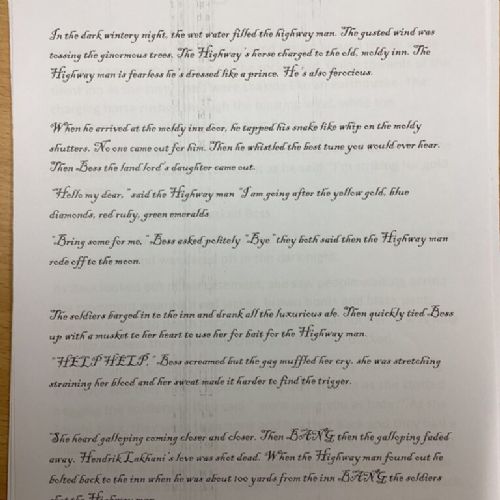 In the dark wintery night, the wet water filled the highway man. The gusted wind was
tossing the ginormous trees. The Highway's horse charged to the old, moldy inn. The
Highway man is fearless he's dressed like a prince. He's also ferocious.
When he arrived at the moldy inn door, he tapped his snake like whip on the moldy
shutters. No one came out for him. Then he whistled the best tune you would ever hear.
Then Bess the land lord's daughter came out.
"Hello my dear," said the Highway man "I am going after the yellow gold, blue
diamonds, red ruby, green emeralds
"Bring some for me," Bess asked politely "Bye" they both said then the Highway man
rode off to the moon.
The soldiers barged in to the inn and drank all the luxurious ale. Then quickly tied Bess
up with a musket to her heart to use her for bait for the Highway man.
"HELP HELP," Bess screamed but the gag muffled her cry, she was stretching
straining her blood and her sweat made it harder to find the trigger.
She heard galloping coming closer and closer. Then BANG then the galloping faded
away. Hendrik Lakhani's love was shot dead. When the Highway man found out he
bolted back to the inn when he was about 100 yards from the inn BANG the soldiers
shot the Highway man.